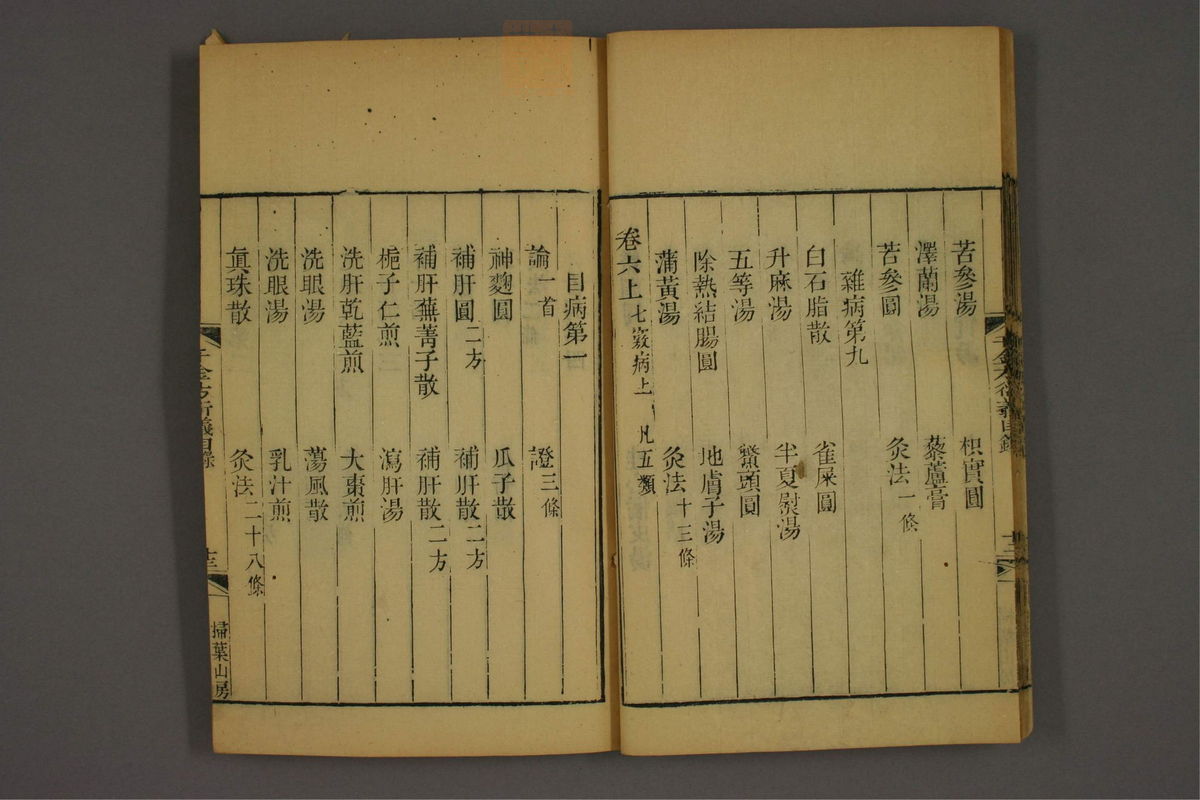 苦參湯　枳實圓
澤蘭湯　藜蘆膏
苦參圓　灸法一條
雜病第九
白石脂散　雀屎圓
升麻湯　半夏熨湯
五等湯　鱉頭圓
除熱結腸圓　地膚子湯
蒲黃湯　灸法十三條
卷六上七竅病上　凡五類
目病第一
論一首　證三條
神麴圓　瓜子散
補肝圓二方　補肝散二方
補肝蕪菁子散　補肝散二方
梔子仁煎　瀉肝湯
洗肝乾藍煎　大棗煎
洗眼湯　蕩風散
洗眼湯　乳汁煎
眞珠散　灸法二十八條
千金方衍義目錄　十三
掃葉山房